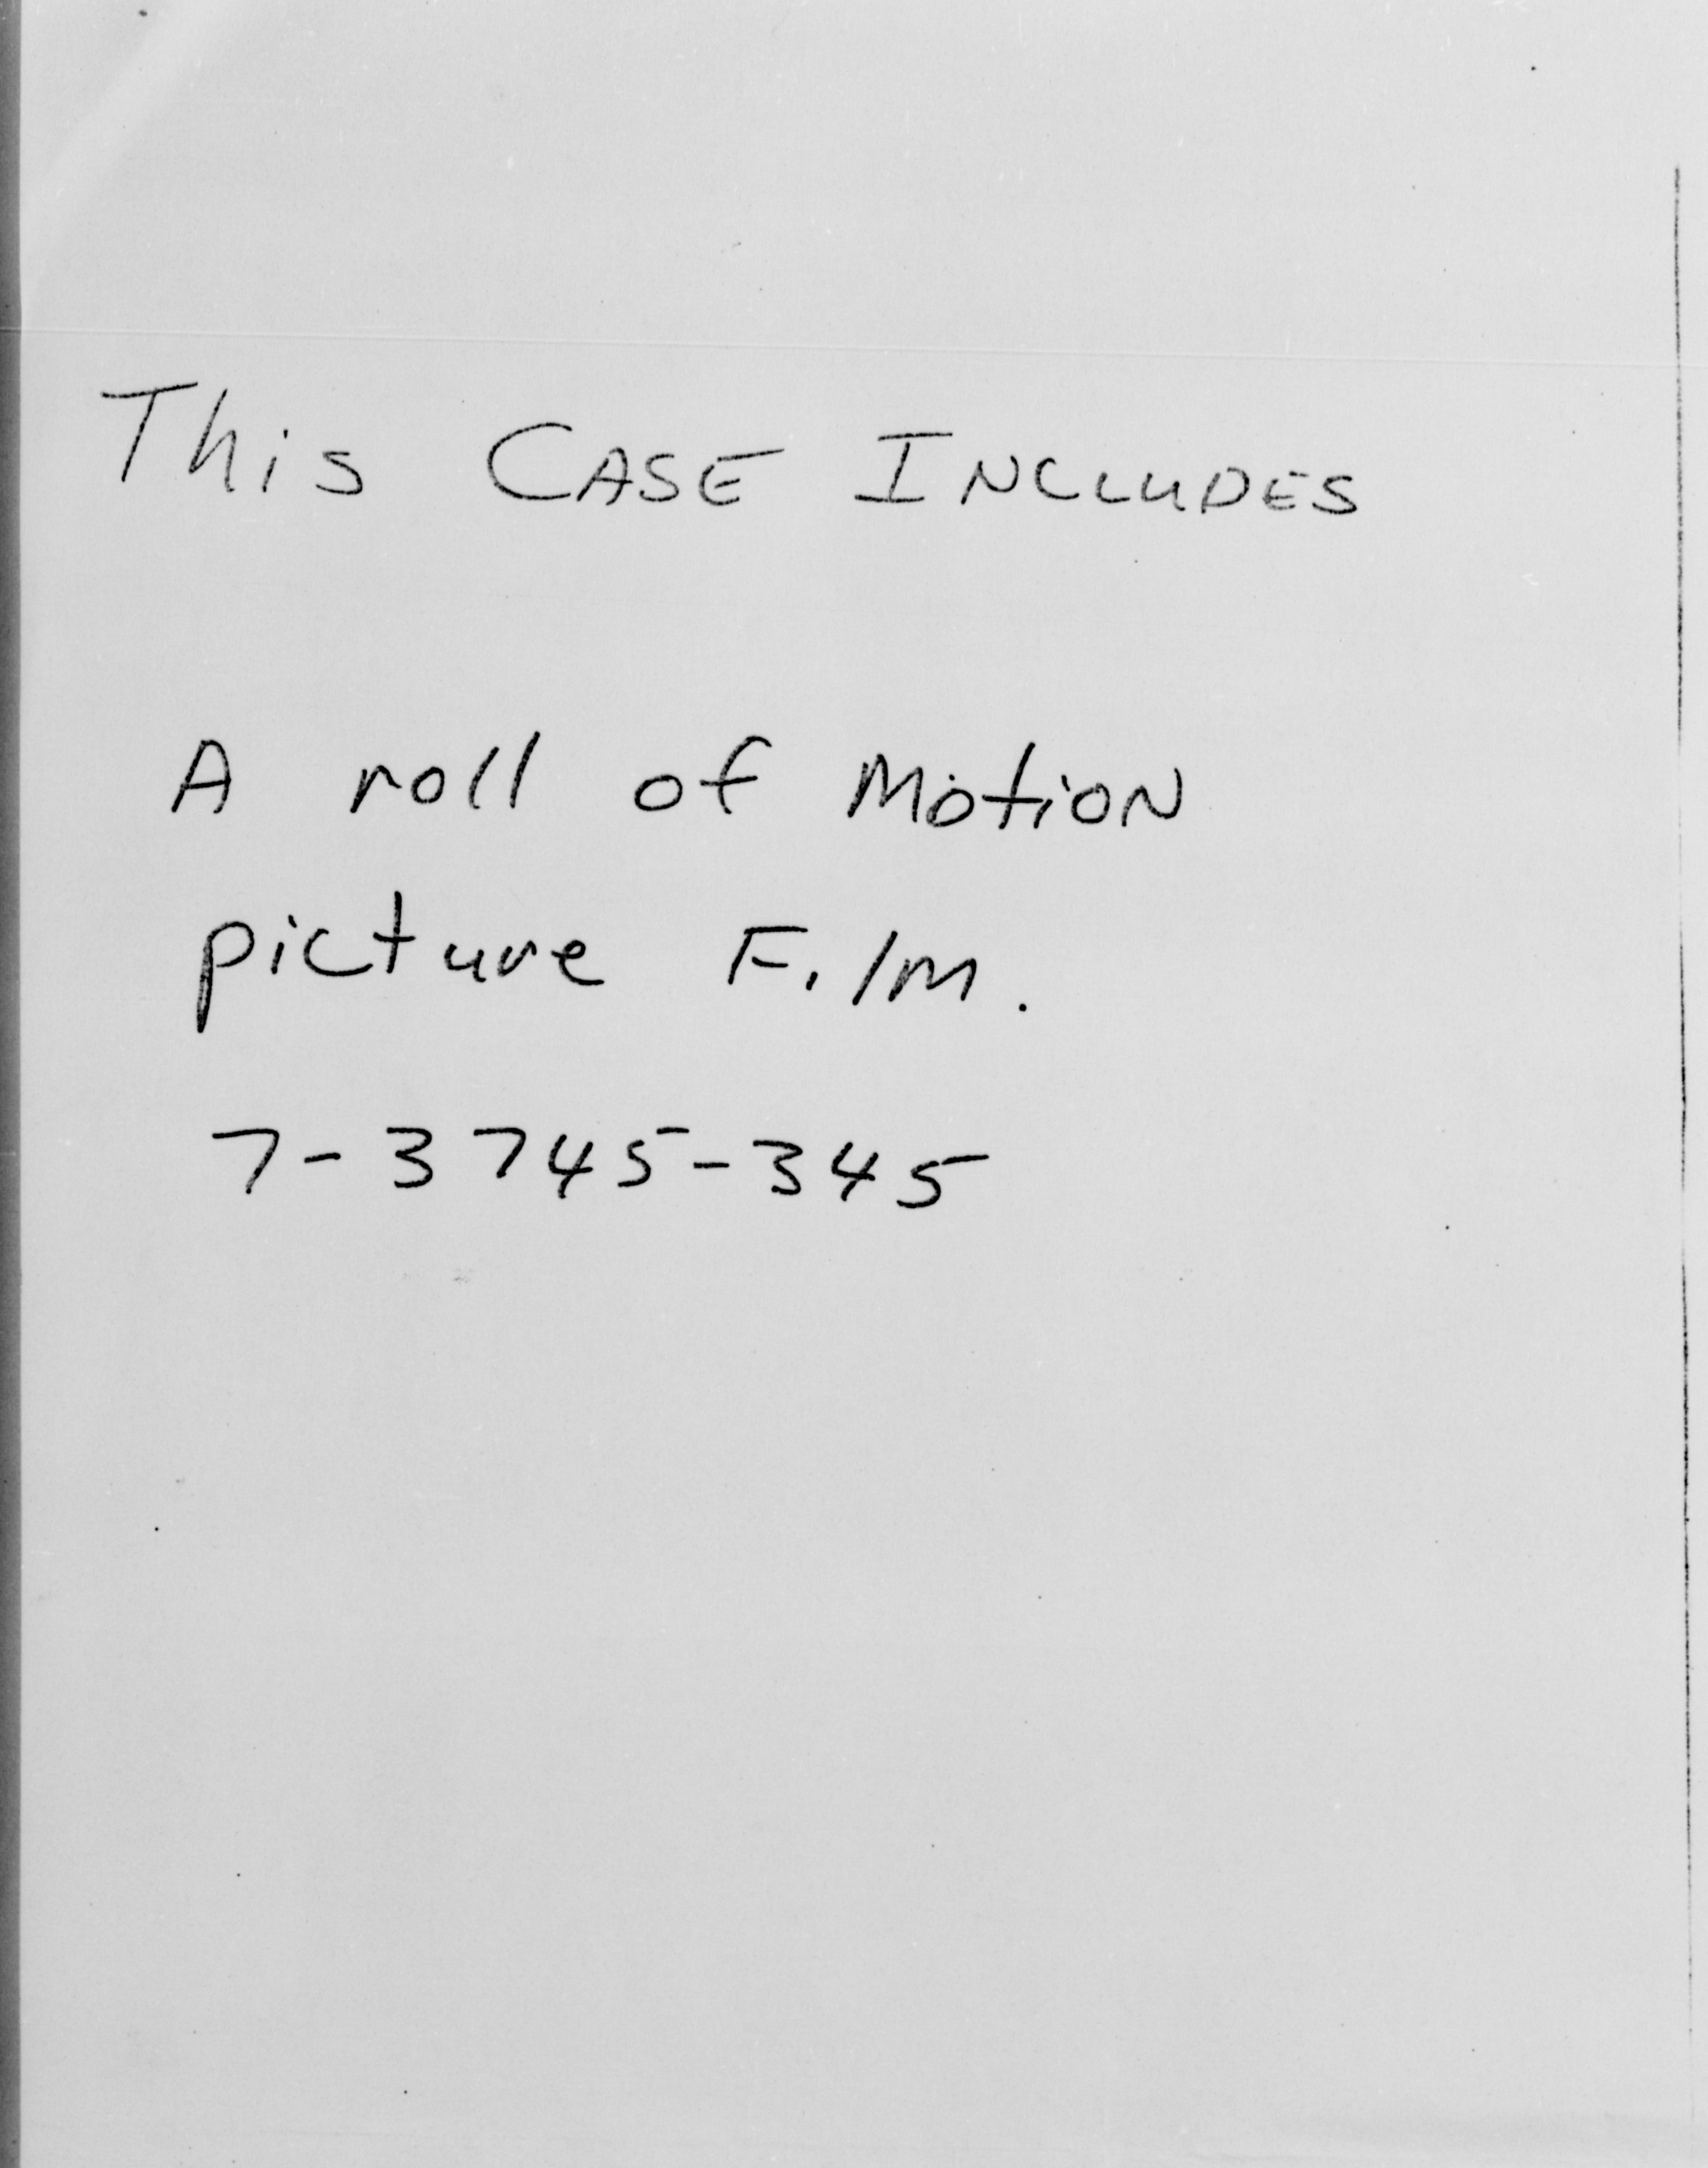 This CASE INCLUDES
A roll of Motion
picture Film.
7-3745-345